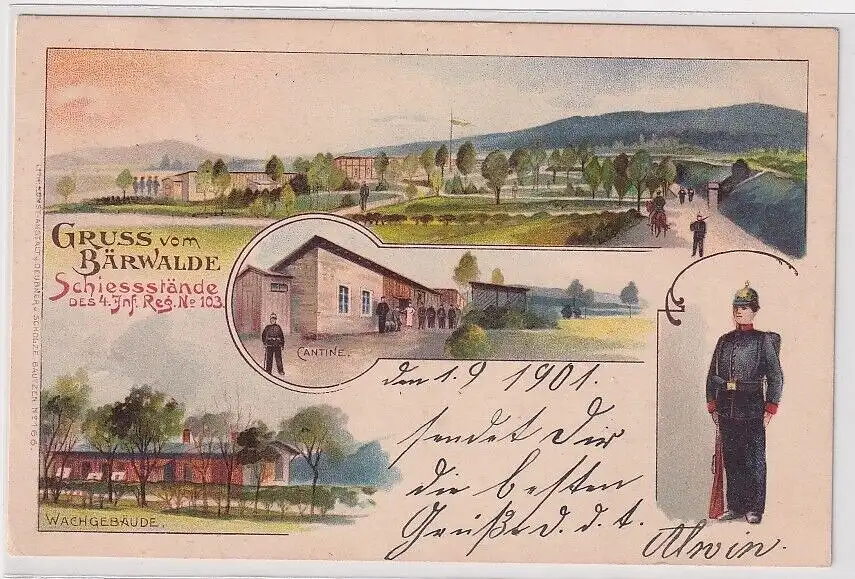 GRUSS vom
BÄRWALDE
Schiessstände
DES 4. Inf. Reg. No 103.
CANTINE.
WACHGEBÄUDE.
den 1.9 1901.
sendet Dir
die besten
Grüße d. d. t.
Alwin.
LITH. KUNST-ANSTALT v. DEUBNER & SCHOLZE, BAUTZEN No 166.